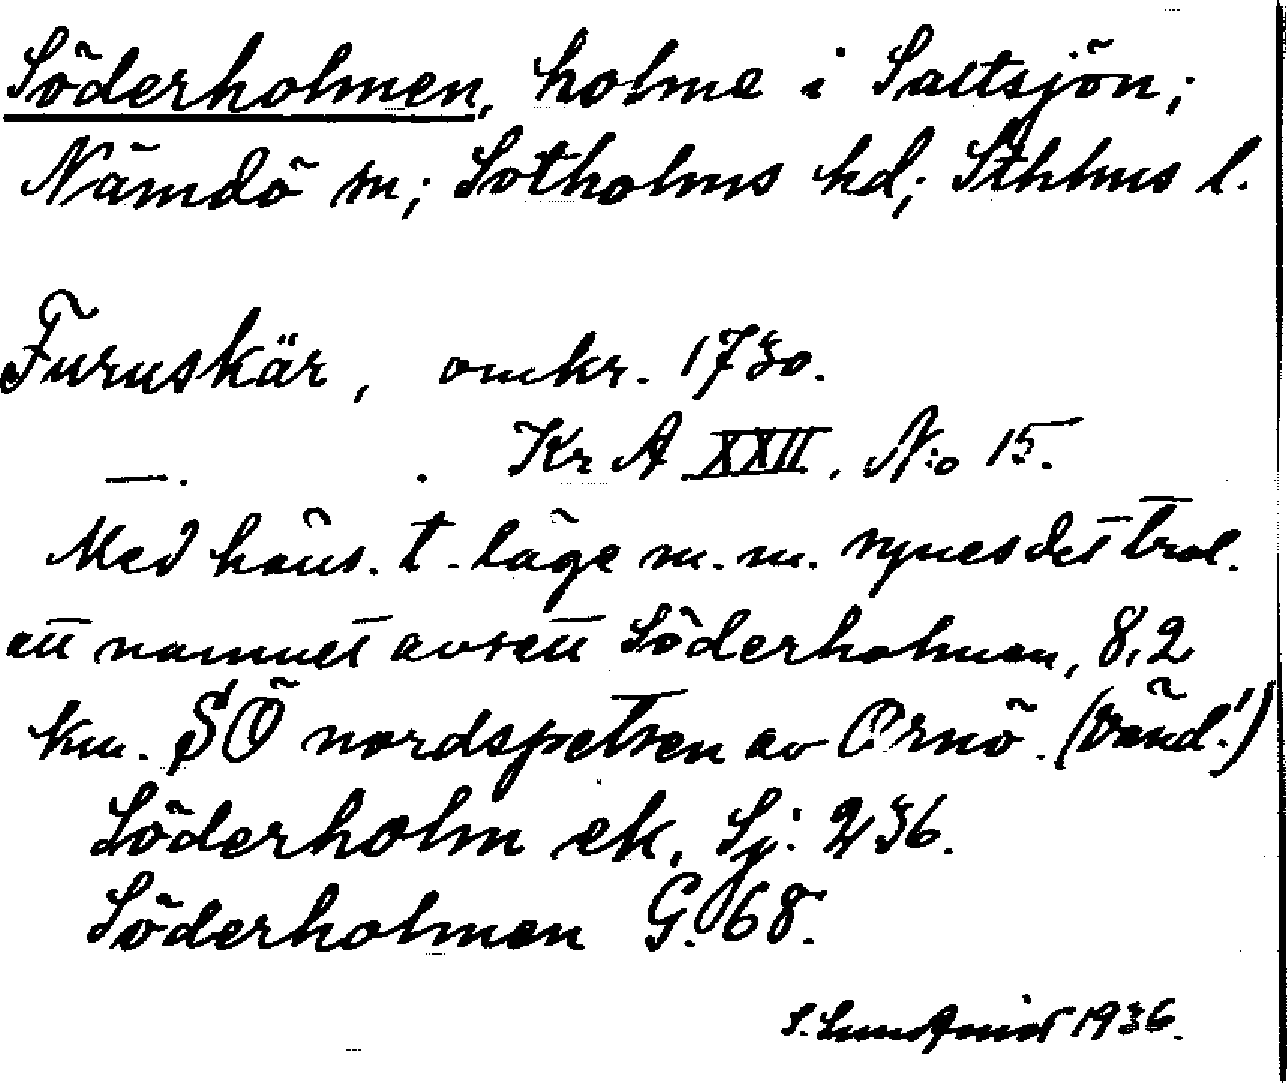 Söderholmen, holme i Saltsjön;
Nämdö sn; Sotholms hd; Sthlms l.
Furuskär, omkr. 1730.
—. . Kr A XXII. N:o 15.
Med häns. t. läge m. m. synes det trol.
att namnet avsett Söderholmen, 8,2
km. SÖ nordspetsen av Ornö. (Vänd!)
Söderholm ek. Sj: 236.
Söderholmen G. 68.
S. Lundqvist 1936.